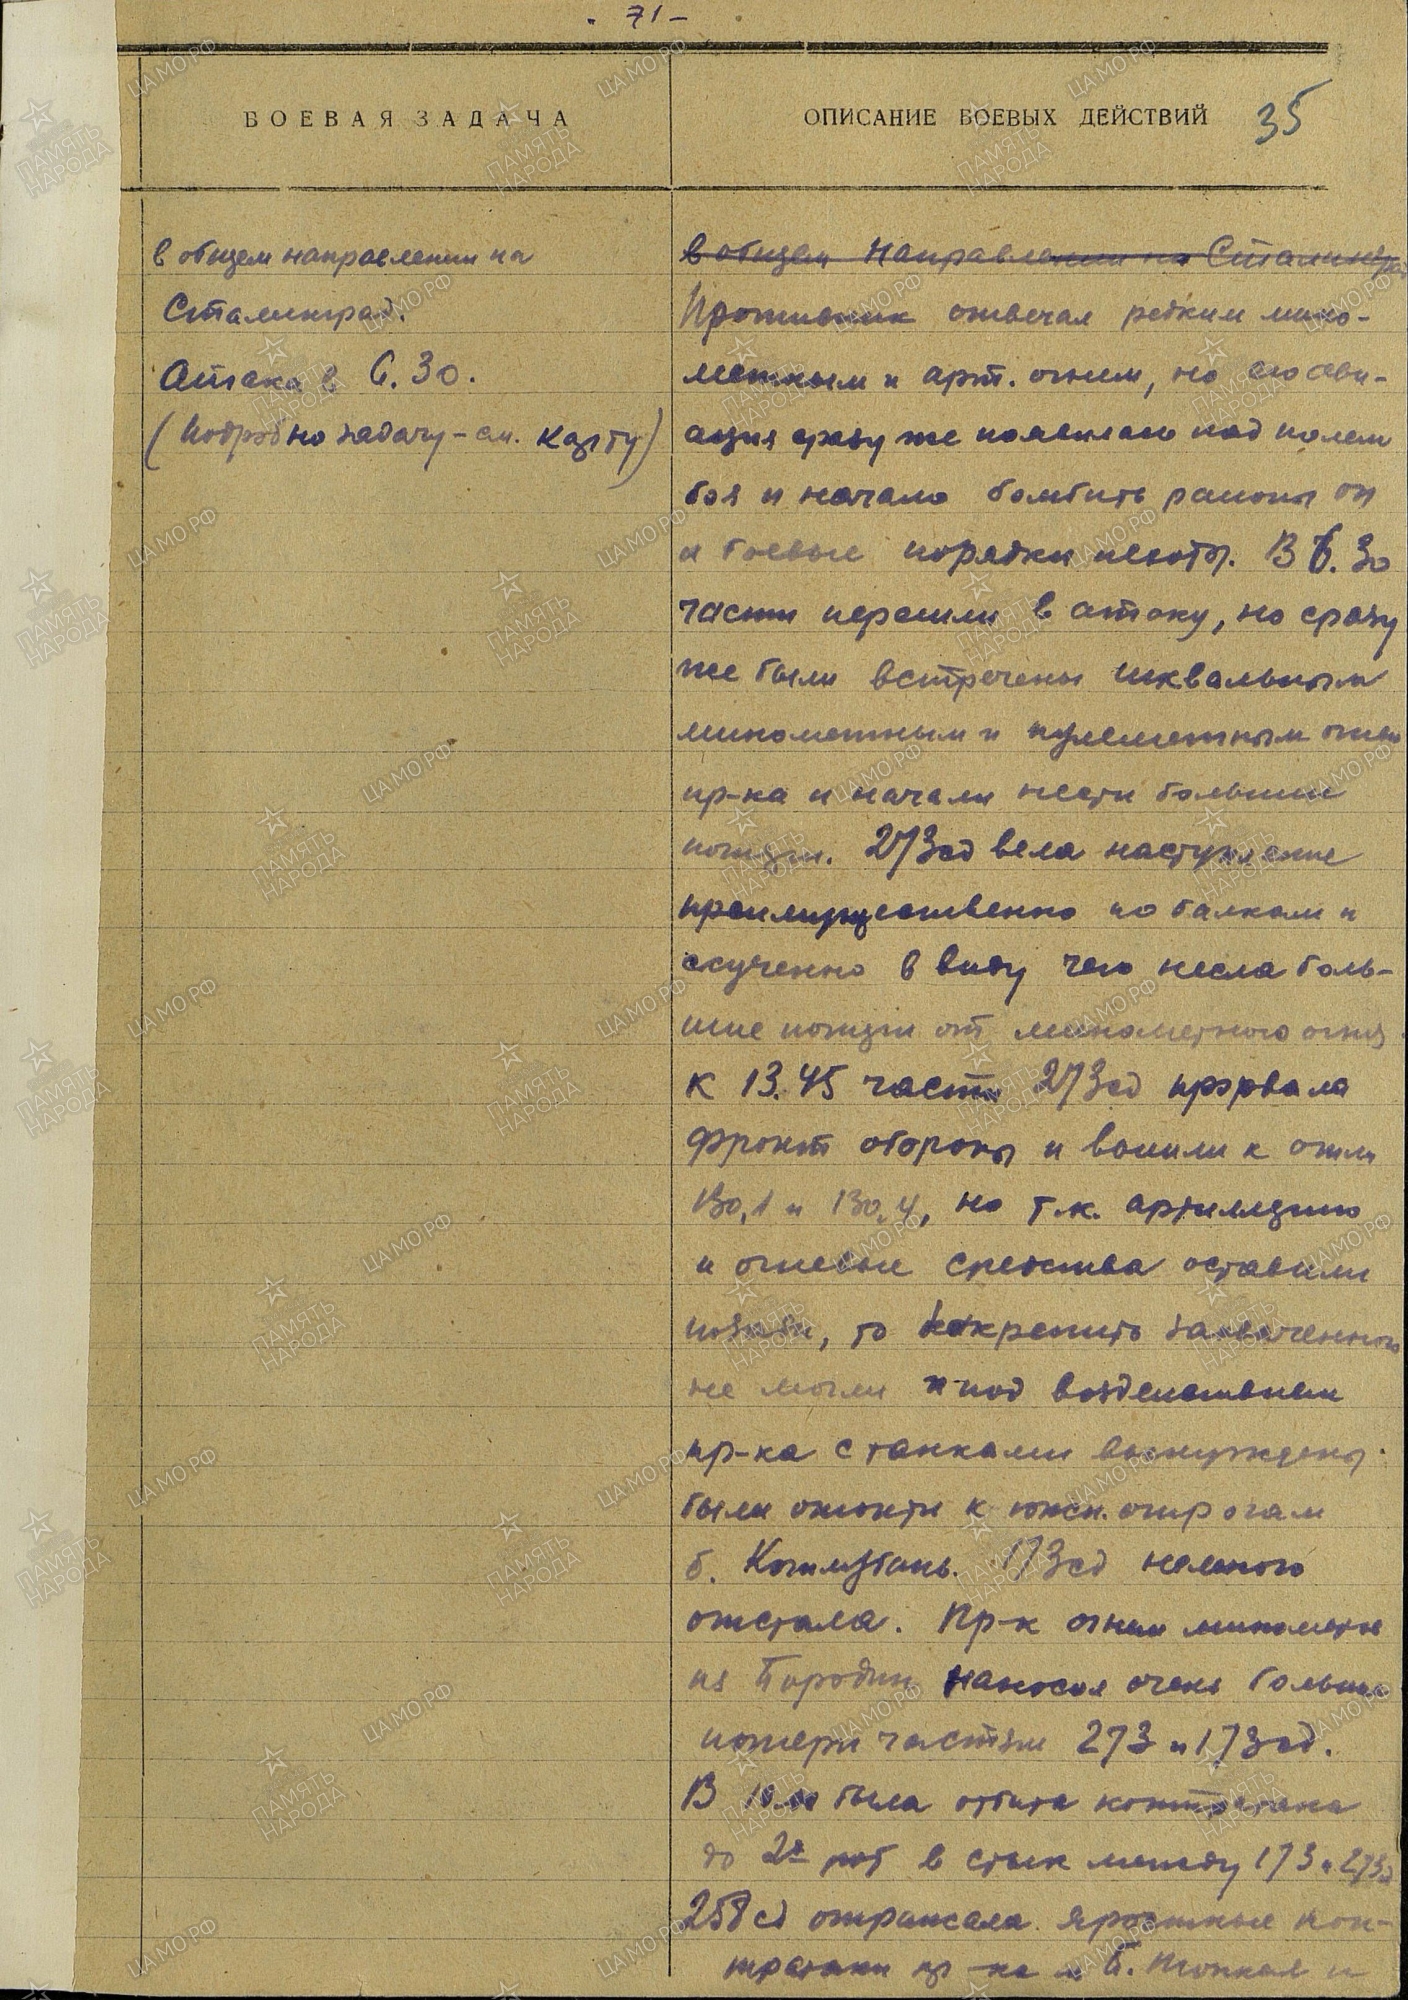 - 71 -
БОЕВАЯ ЗАДАЧА
ОПИСАНИЕ БОЕВЫХ ДЕЙСТВИЙ
35
в общем направлении на
Сталинград.
Атака в 6.30.
(Подробно задачу - см. карту)
в общем направлении на Сталинград
Противник отвечал редким мино-
метным и арт. огнем, но его ави-
ация сразу же появилась над полем
боя и начала бомбить районы ОП
и боевые порядки пехоты. В 6.30
части перешли в атаку, но сразу
же были встречены шквальным
минометным и пулеметным огнем
пр-ка и начали нести большие
потери. 273сд вела наступление
преимущественно по балкам и
скученно в виду чего несла боль-
шие потери от минометного огня.
К 13.45 части 273сд прорвала
фронт обороны и вышли к отм
130,1 и 130,4, но т.к. артиллерию
и огневые средства оставили
позади, то закрепить захваченного
не могли и под воздействием
пр-ка с танками вынуждены
были отойти к южн. отрогам
б. Котлубань. 173сд немного
отстала. Пр-к огнем минометов
из Бородин наносил очень большие
потери частям 273 и 173сд.
В была отбита контратака
до 2х рот в стык между 173 и 273сд
258сд отражала яростные кон-
тратаки пр-ка и б. Тонкая и
ЦАМО.РФ
ПАМЯТЬ НАРОДА